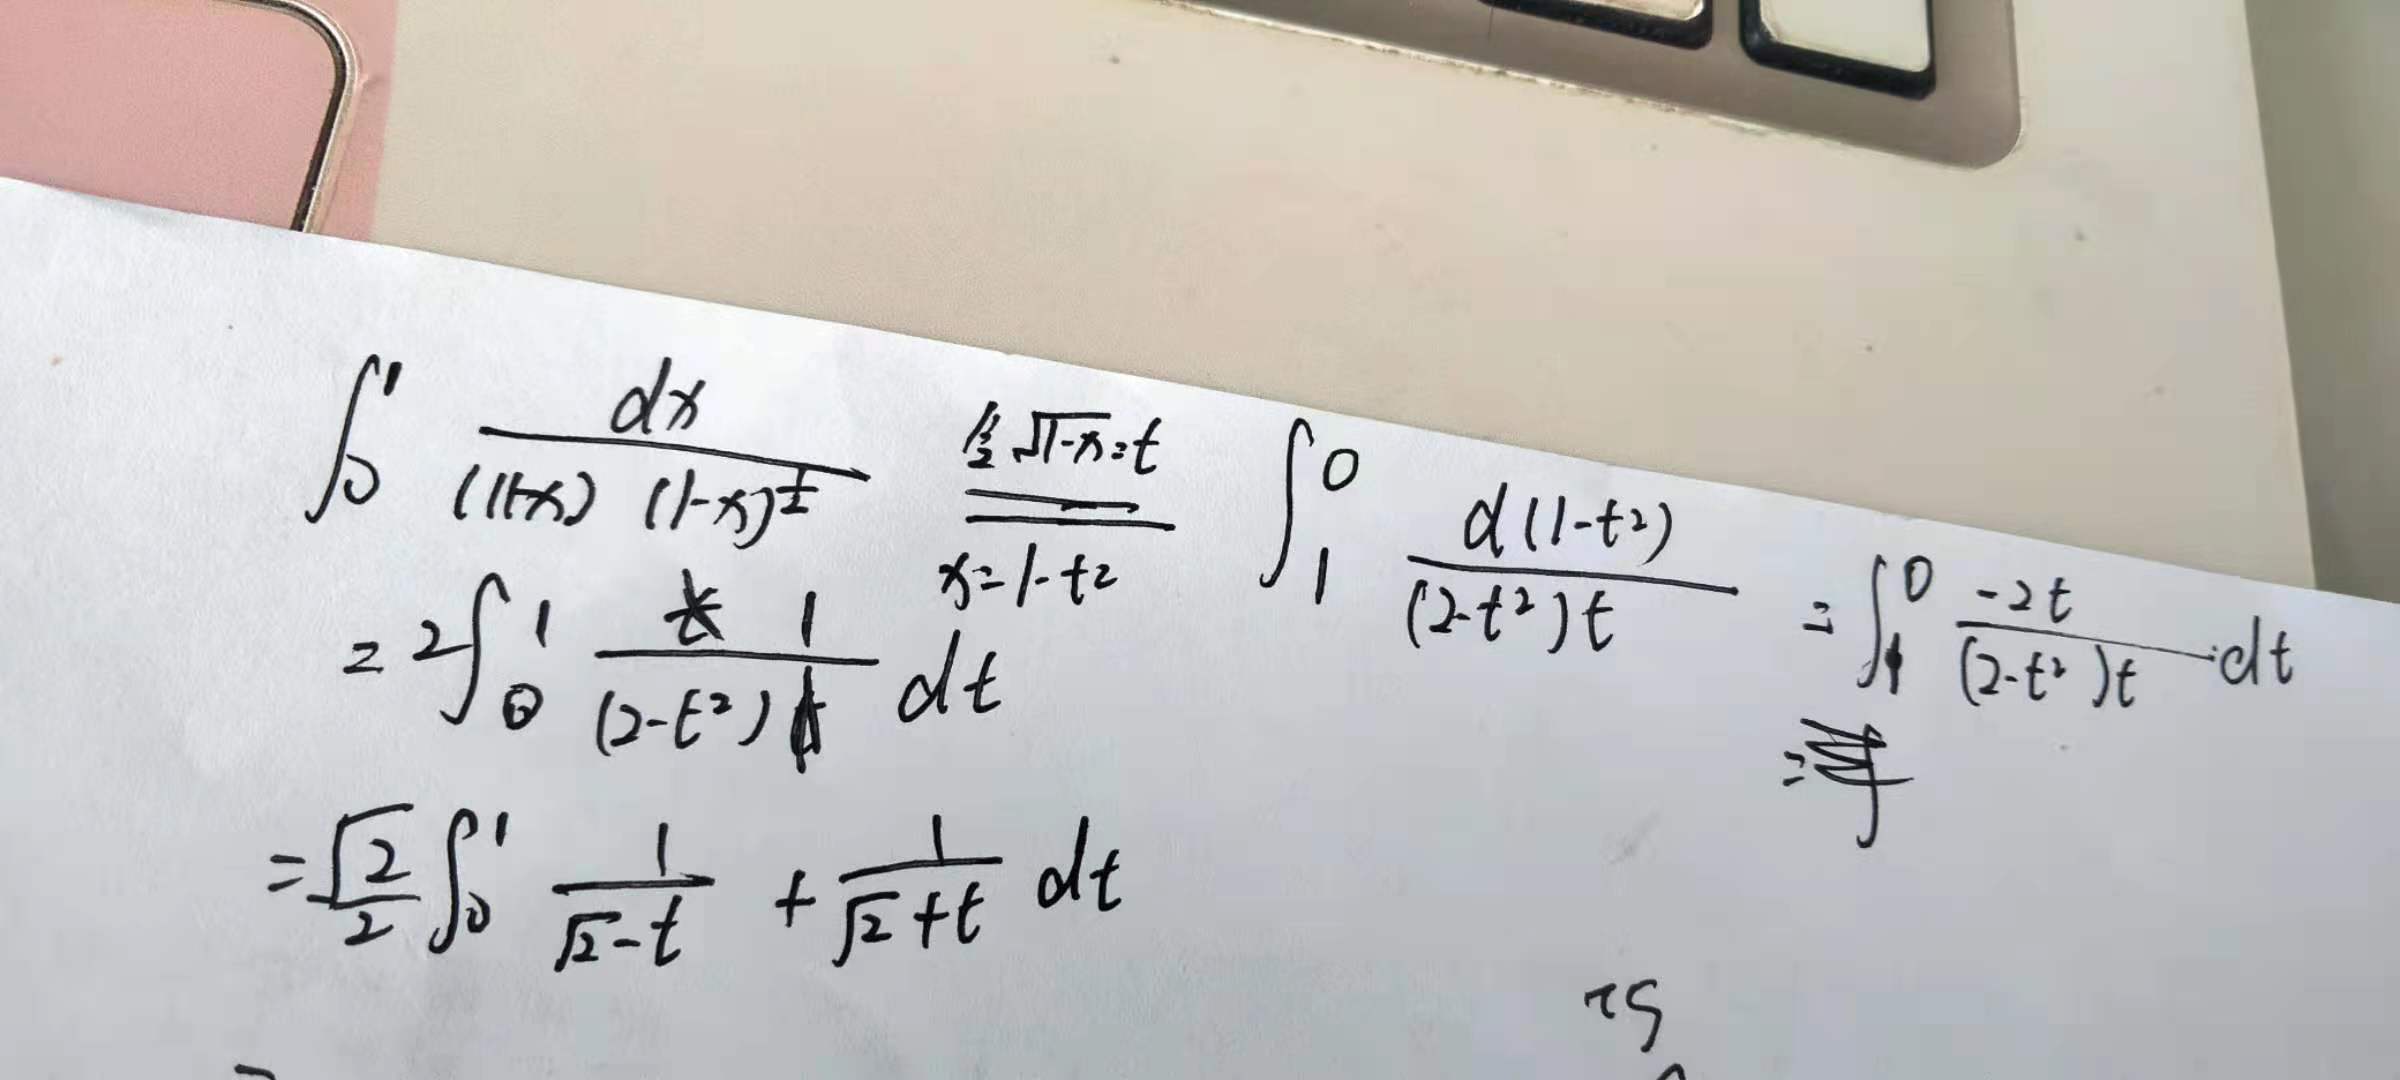 ∫₀¹ dx / ((1+x) (1-x)^½) 令√(1-x)=t x=1-t² ∫₁⁰ d(1-t²) / ((2-t²)t) = ∫₁⁰ -2t / ((2-t²)t) dt
= 2∫₀¹ 1 / (2-t²) dt =
= √2/2 ∫₀¹ 1/(√2-t) + 1/(√2+t) dt